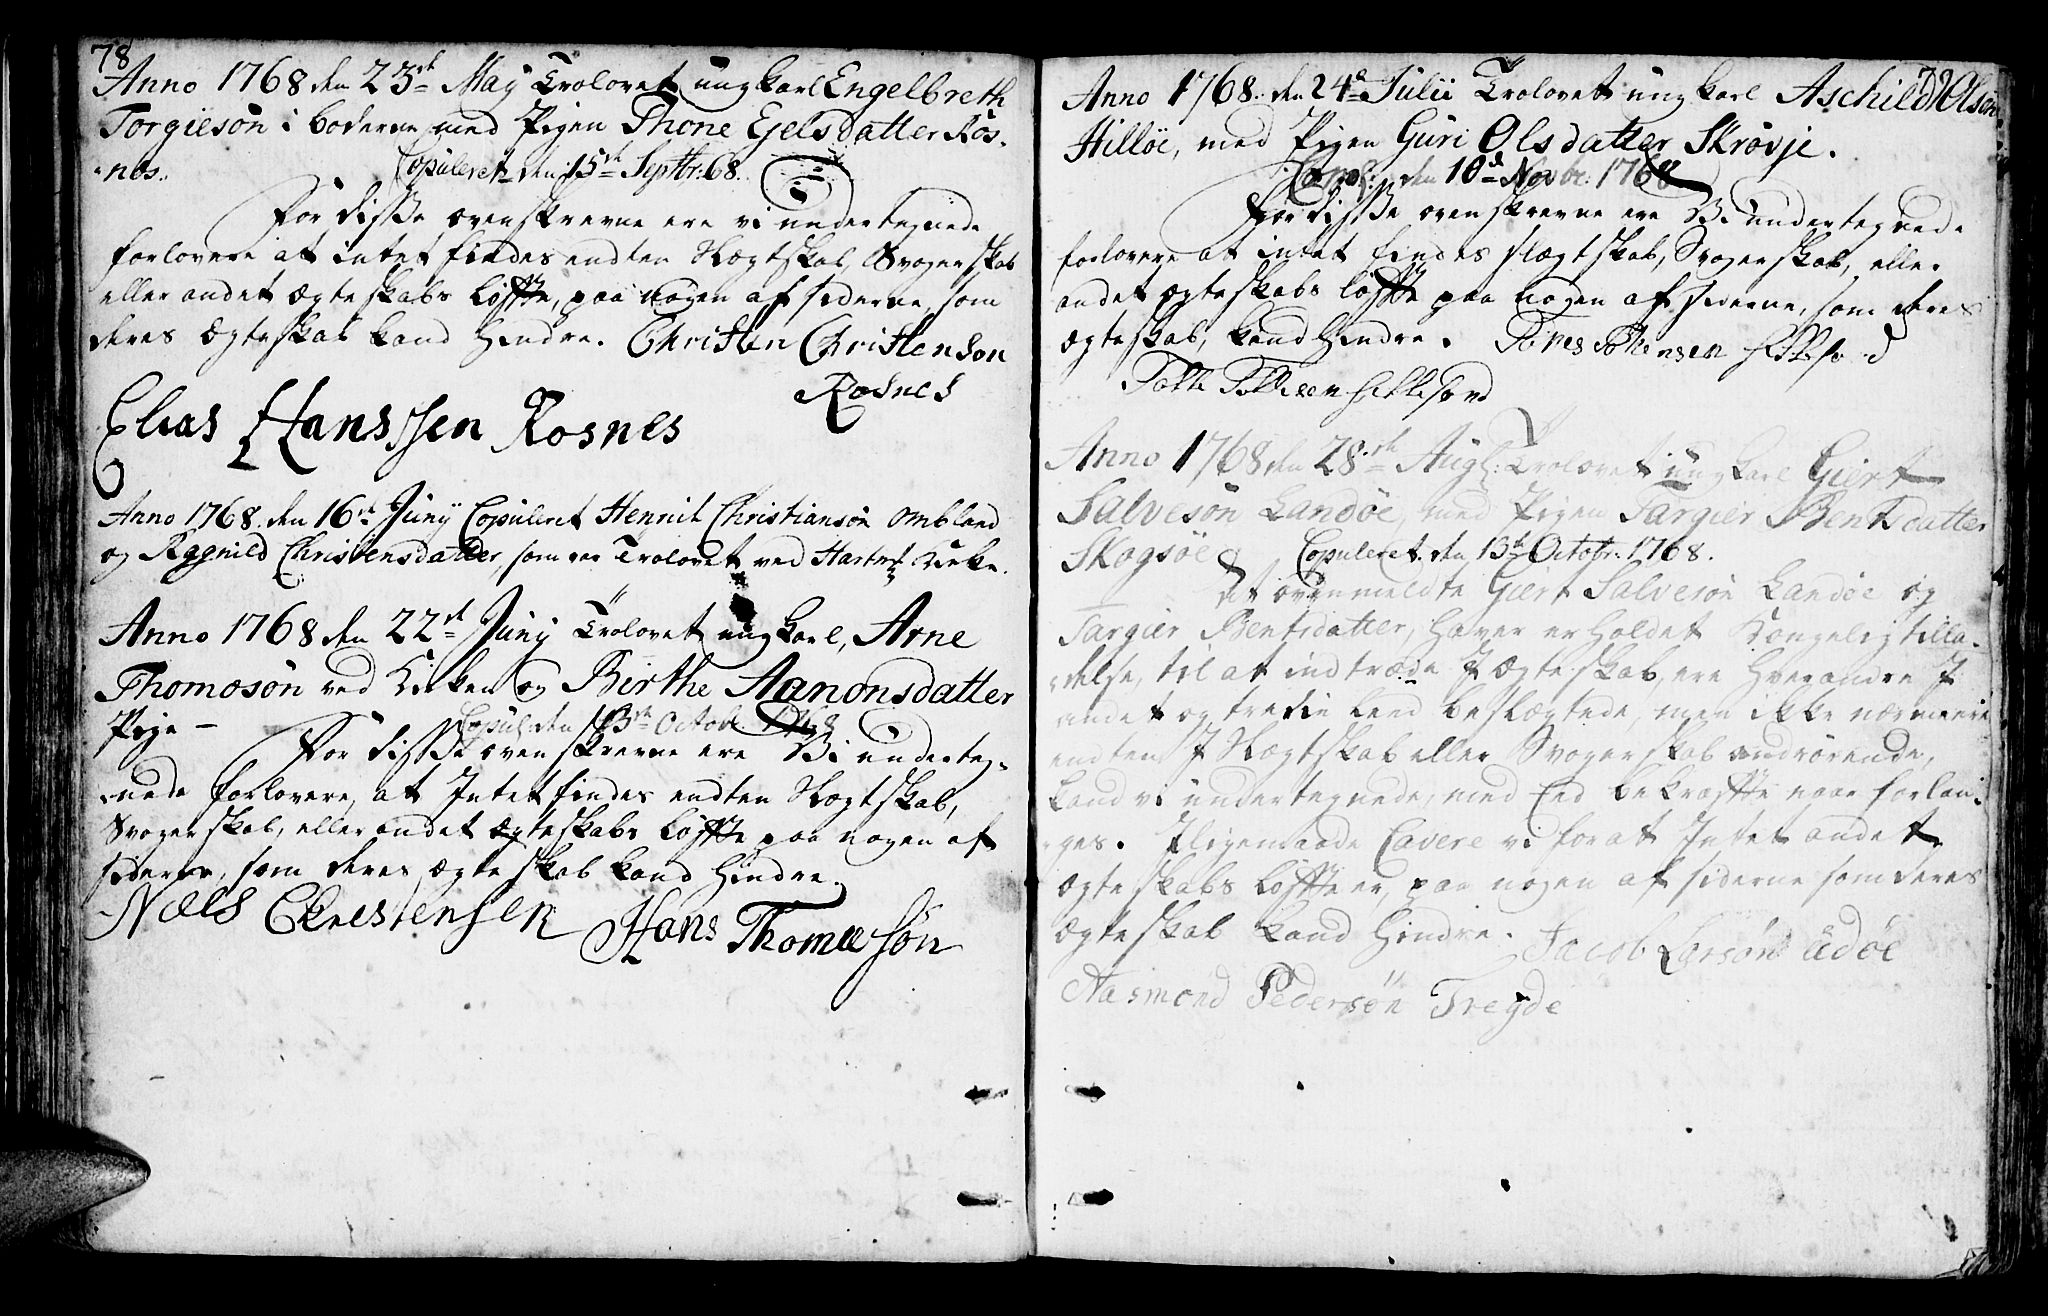 78
Anno 1768 den 23de May Trolovet ungkarl Engelbreth
Torgiesøn i boderne med Pigen Thone Eyelsdatter Ros-
-nes.
Copuleret den 15de Septbr: 68.
For disse ovenskrevne ere vi undertegnede
forlovere at intet findes endten Slegtskab, Svogerskab
eller andet ægteskabs løffte, paa nogen af siderne, som
deres Ægteskab kand Hindre. Christen Christenson
Rosnes
Elias Hanssen Rosnes
Anno 1768. den 16de Juny Copuleret Henrik Christiansøn Ombland
og Ragnild Christensdatter, som var Trolovet ved Hartm: Kirke.
Anno 1768 den 22de Juny Trolovet ungkarl, Arne
Thomosøn ved Kirken og Birthe Aanonsdatter
Pige –
Copul: den 13de Octobr. 1768
For disse ovenskrevne ere Vi underteg-
-nede forlovere, at Intet findes endten Slegtskab,
Svogerskab, eller andet ægteskabs løffte paa nogen af
siderne, som deres ægteskab kand Hindre.
Niels Chrestensen Hans Thomæsøn
79
Anno 1768. den 24de Julii Trolovet ungkarl Aschild Olsøn
Hilløe, med Pigen Guri Olsdatter Skrøvje.
Copul: den 10de Novbr. 1768
For disse ovenskrevne ere Vi undertegnede
forlovere at intet findes slegtskab, Svogerskab, eller
andet ægteskabs løffte paa nogen af siderne, som deres
ægteskab, kand Hindre.
Anno 1768 den 28de Aug: Trolovet ungkarl Giert
Salvesøn Landøe med Pigen Targier Bentsdatter
Skogsøe
Copuleret den 13de Octobr. 1768.
At ovenmeldte Giert Salvesøn Landøe og
Targier Bentsdatter, haver erholdet Kongelig tilla-
-delse, til at indtræde I Ægteskab, ere hverandre I
andet og tredie Leed beslegtede, men ikke nærmere
endten I Slegtskab eller Svogerskab andrørende,
kand vi undertegnede, med Eed bekræffte naar forlan-
-ges. Iligemaade Cavere vi for at Intet andet
ægteskabs løffte er, paa nogen af siderne som deres
Ægteskab kand Hindre. Jacob Larsøn Udøe
Aasmond Pedersøn Tregde